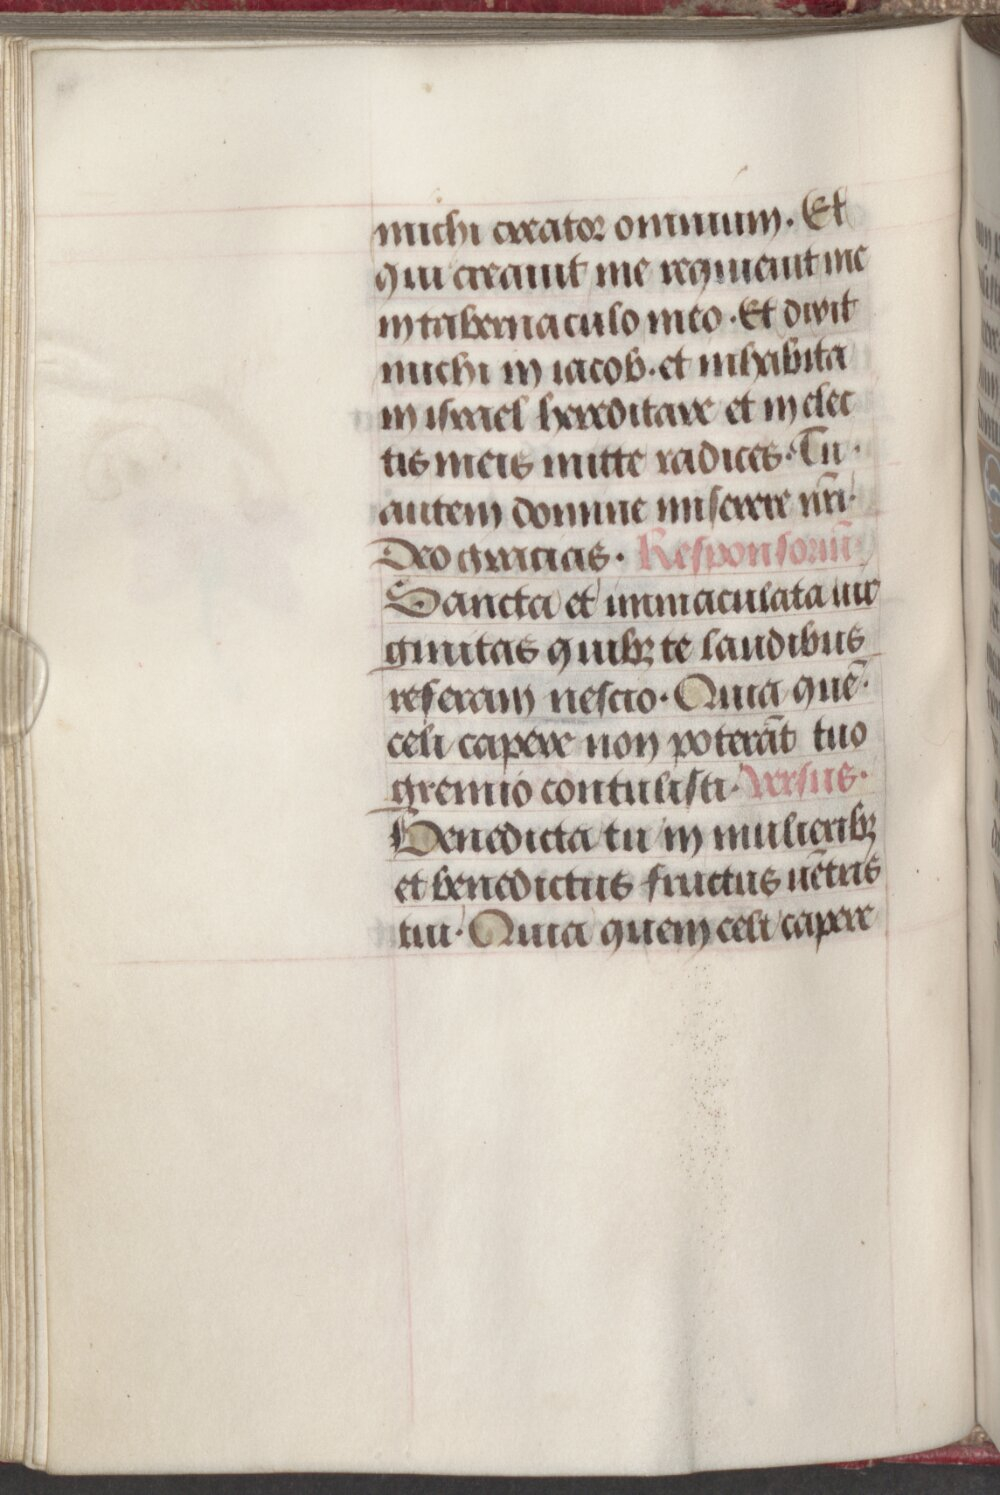 michi creator omnium. Et
qui creauit me requieuit me
in tabernaculo meo. Et dixit
michi in iacob. et inhabita
in israel hereditare et in elec
tis meis mitte radices. Tu
autem domine miserere nr̄i.
Deo gracias. Responsoriū
Sancta et immaculata uir
ginitas quibꝫ te laudibus
referam nescio. Quia quē
celi capere non poterāt tuo
gremio contulisti. Versus.
Benedicta tu in mulieribꝫ
et benedictus fructus uētris
tui. Quia quem celi capere